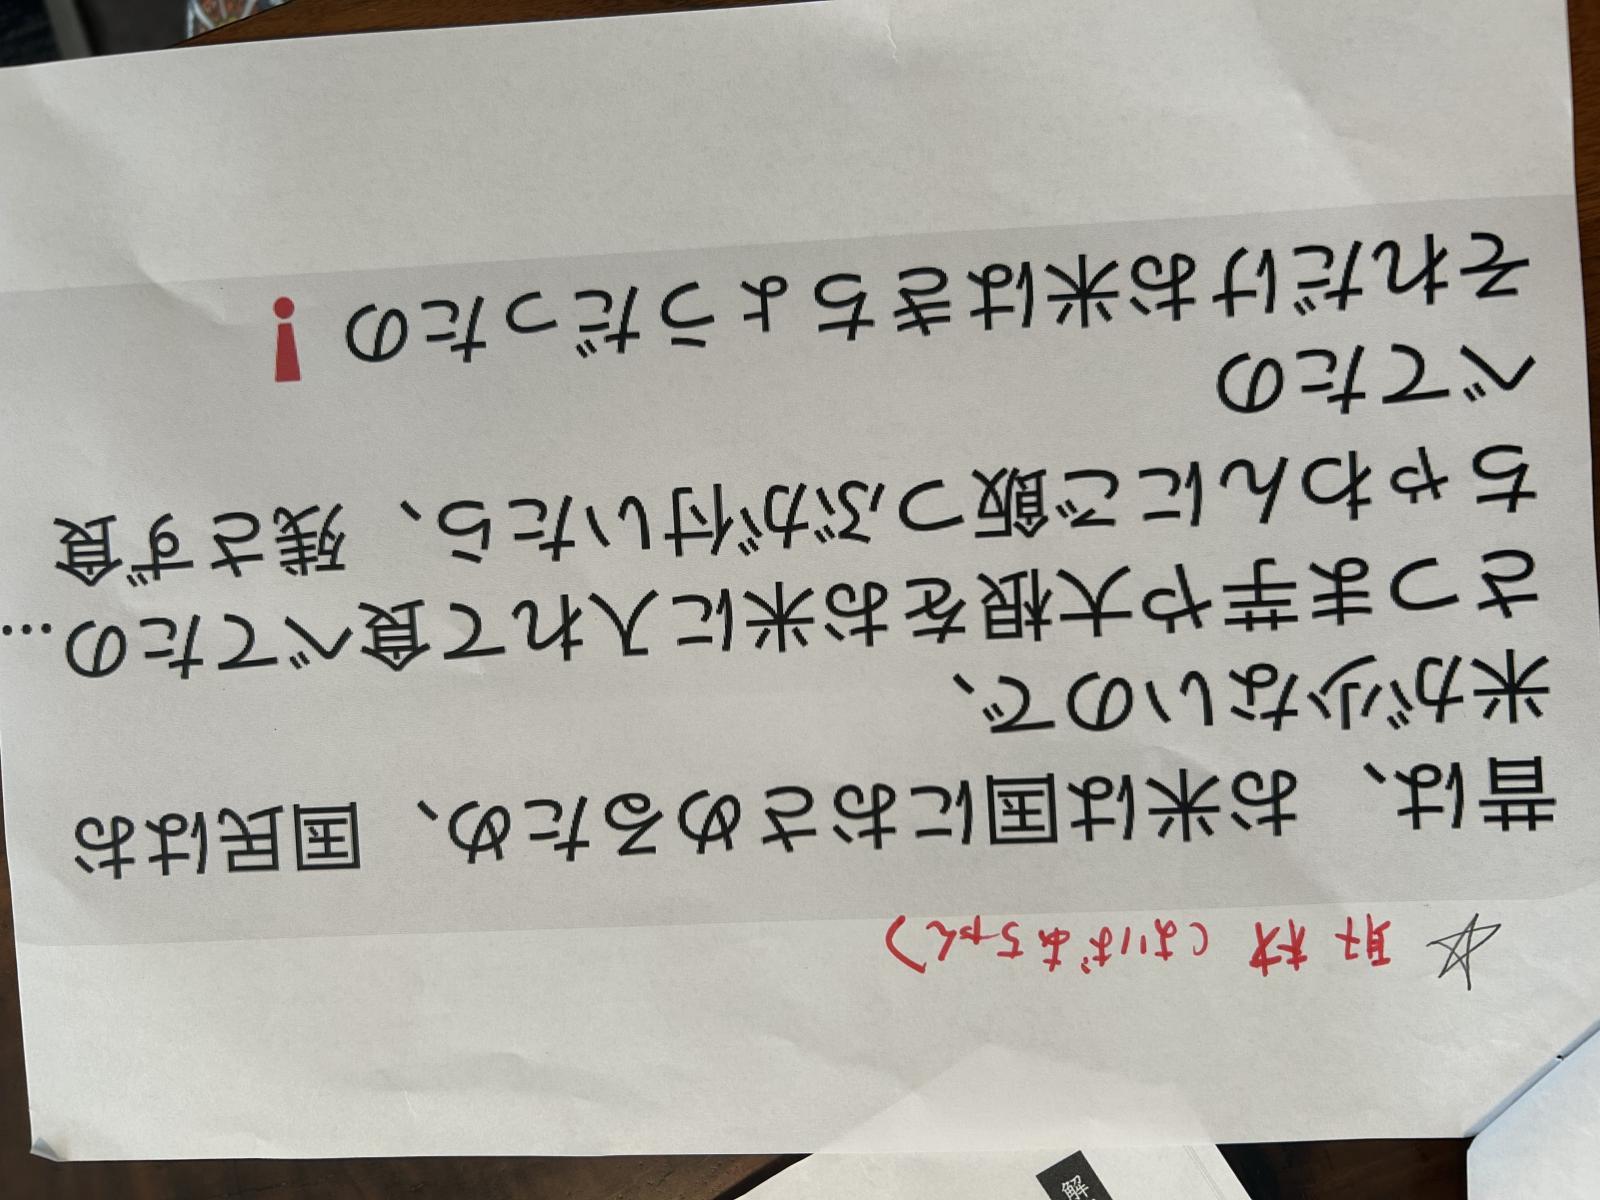 ☆ 取材 (おばあちゃん)
昔は、お米は国におさめるため、国民はお
米が少ないので、
さつま芋や大根をお米に入れて食べてたの…
ちゃわんにご飯つぶが付いたら、残さず食
べてたの
それだけお米はきちょうだったの❗
解